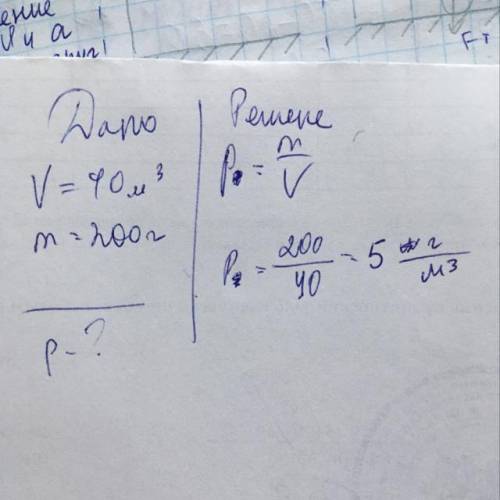 ение
и а
Дано
V = 40 м³
m = 200 г
ρ - ?
Решение
ρ = m/V
ρ = 200/40 = 5 г/м³